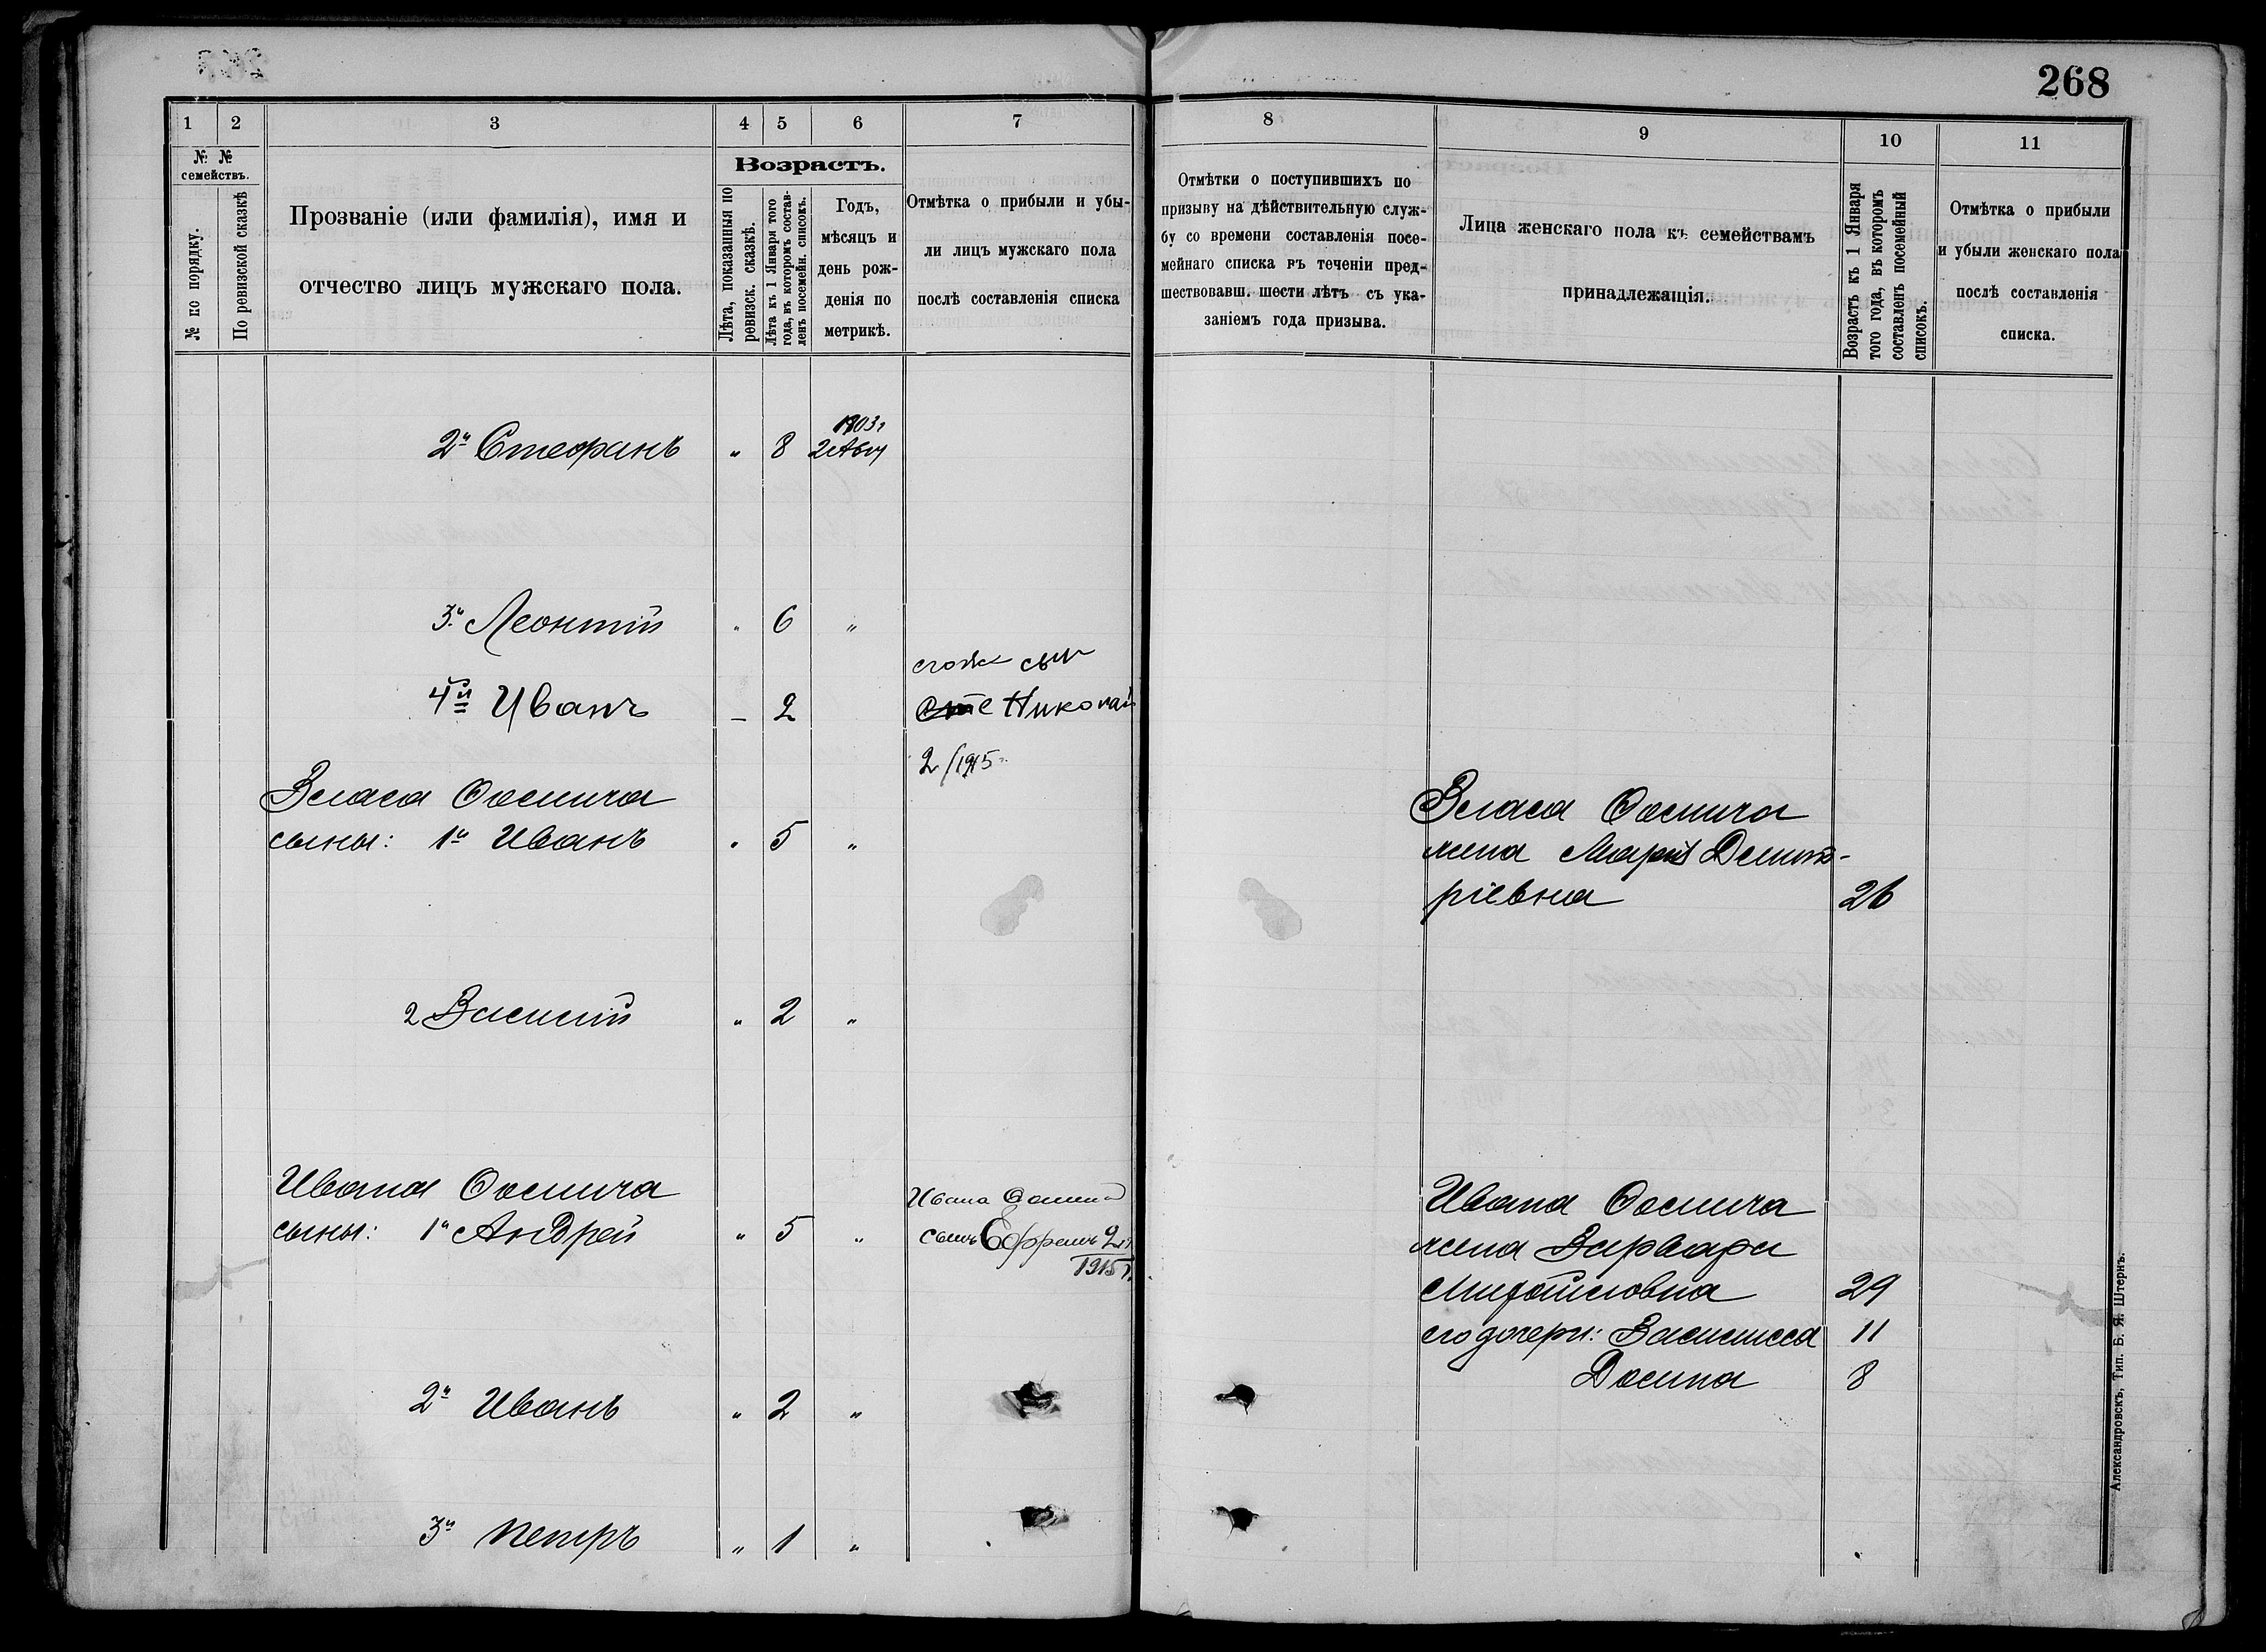 268
1 2 3 4 5 6 7
№ № семействъ.
№ по порядку.
По ревизской сказкѣ
Прозваніе (или фамилія), имя и
отчество лицъ мужскаго пола.
Возрастъ.
Лѣта, показанныя по
ревизск. сказкѣ.
Лѣта къ 1 Января того
года, въ которомъ состав-
ленъ посемейн. списокъ.
Годъ,
мѣсяцъ и
день рож-
денія по
метрикѣ.
Отмѣтка о прибыли и убы-
ли лицъ мужскаго пола
послѣ составленія списка
1903г
2й Стефанъ " 8 2 Авг
3й Леонтій " 6 "
4й Иванъ – 2
сынъ
Николай
2/1915
Власа Фомича
сыны: 1й Иванъ " 5 "
2 Василій " 2 "
Ивана Фомича
сыны: 1й Андрей " 5 "
Ивана Фомича
сынъ Ефремъ 2
1915 г.
2й Иванъ " 2 "
3й Петръ " 1 "
8 9 10 11
Отмѣтки о поступившихъ по
призыву на дѣйствительную служ-
бу со времени составленія посе-
мейнаго списка въ теченіи пред-
шествовавш. шести лѣтъ съ ука-
заніемъ года призыва.
Лица женскаго пола къ семействамъ
принадлежащія.
Возрастъ къ 1 Января
того года, въ которомъ
составленъ посемейный
списокъ.
Отмѣтка о прибыли
и убыли женскаго пола
послѣ составленія
списка.
Власа Фомича
жена Марія Димит-
ріевна 26
Ивана Фомича
жена Варвара
Михайловна 29
его дочери: Василисса 11
Домна 8
Александровскъ, Тип. Б. Я. Штернъ.